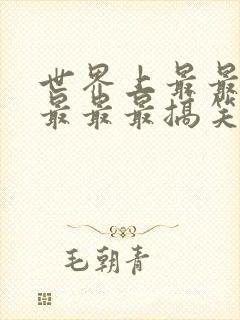 世界上最最
最最最搞笑
毛朝青